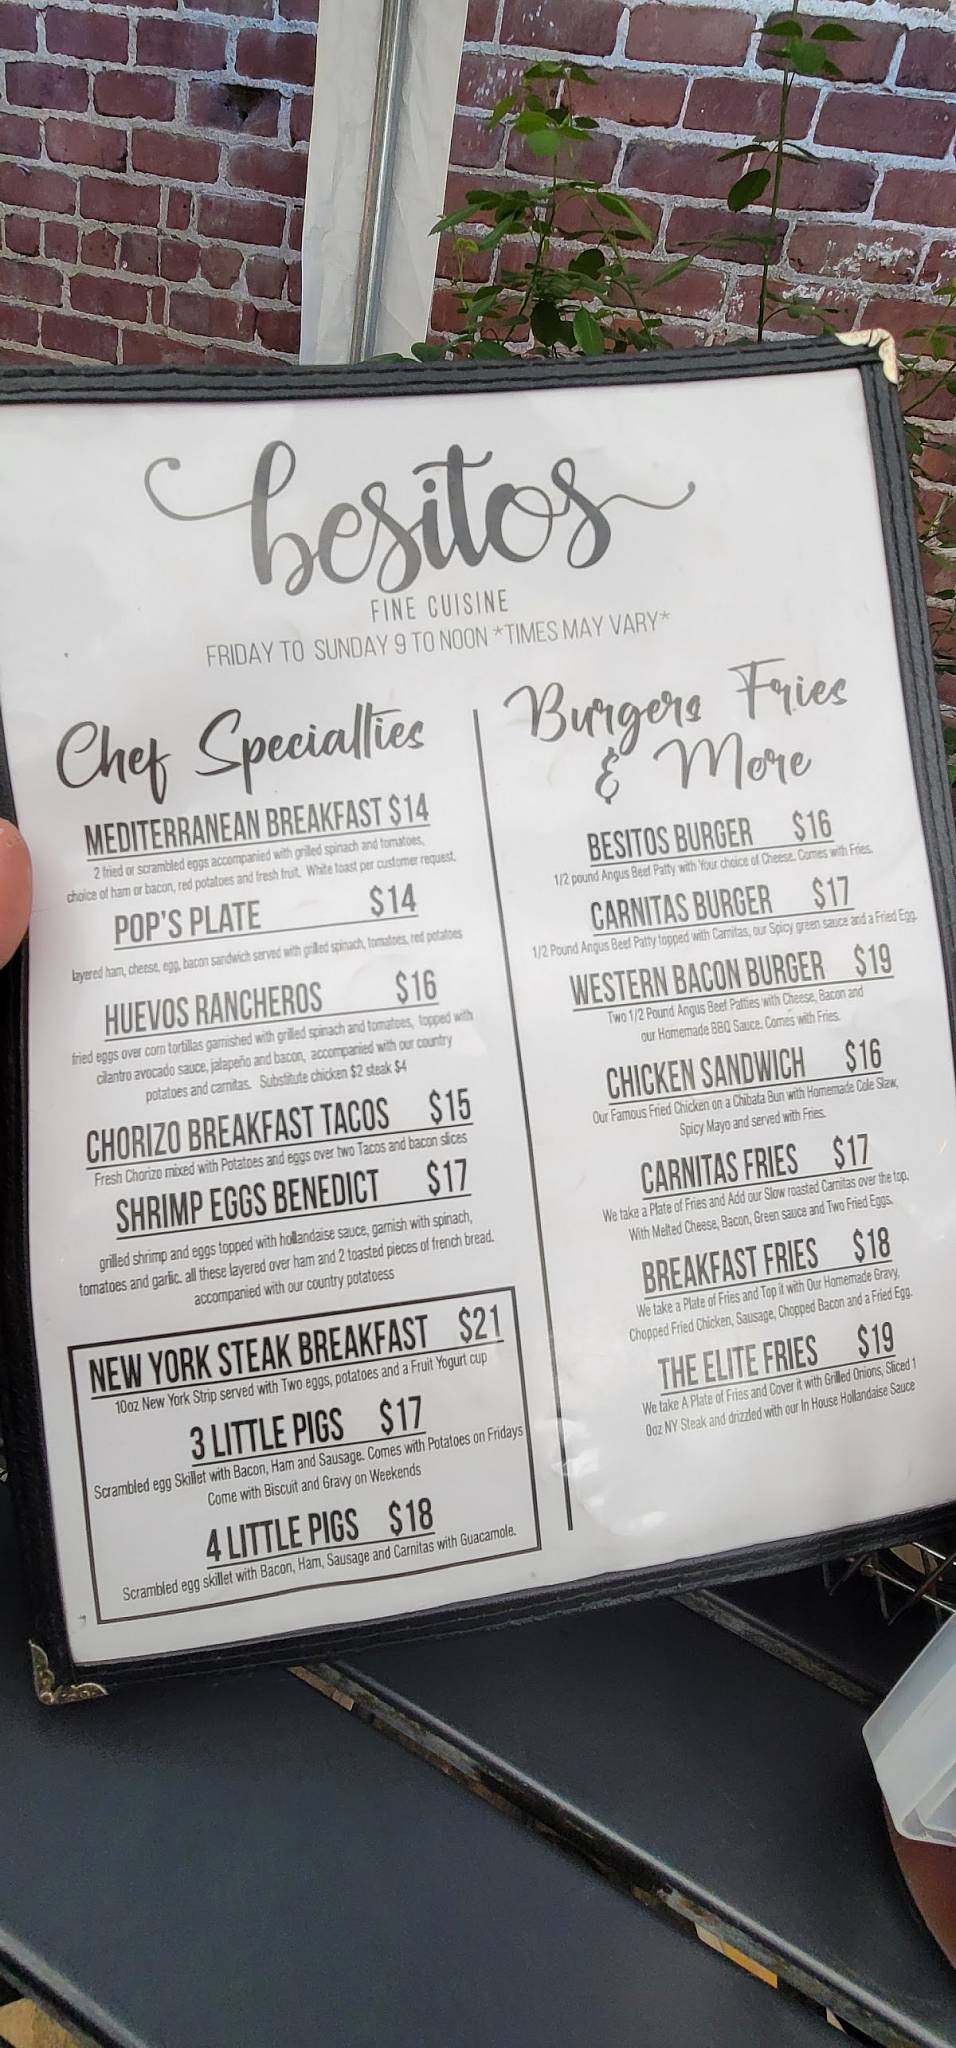 besitos
FINE CUISINE
FRIDAY TO SUNDAY 9 TO NOON *TIMES MAY VARY*
Chef Specialties
MEDITERRANEAN BREAKFAST $14
2 fried or scrambled eggs accompanied with grilled spinach and tomatoes,
choice of ham or bacon, red potatoes and fresh fruit. White toast per customer request.
POP'S PLATE $14
layered ham, cheese, egg, bacon sandwich served with grilled spinach, tomatoes, red potatoes
HUEVOS RANCHEROS $16
fried eggs over corn tortillas garnished with grilled spinach and tomatoes, topped with
cilantro avocado sauce, jalapeño and bacon, accompanied with our country
potatoes and carnitas. Substitute chicken $2 steak $4
CHORIZO BREAKFAST TACOS $15
Fresh Chorizo mixed with Potatoes and eggs over two Tacos and bacon slices
SHRIMP EGGS BENEDICT $17
grilled shrimp and eggs topped with hollandaise sauce, garnish with spinach,
tomatoes and garlic. all these layered over ham and 2 toasted pieces of french bread.
accompanied with our country potatoess
NEW YORK STEAK BREAKFAST $21
10oz New York Strip served with Two eggs, potatoes and a Fruit Yogurt cup
3 LITTLE PIGS $17
Scrambled egg Skillet with Bacon, Ham and Sausage. Comes with Potatoes on Fridays
Come with Biscuit and Gravy on Weekends
4 LITTLE PIGS $18
Scrambled egg skillet with Bacon, Ham, Sausage and Carnitas with Guacamole.
Burgers Fries
& More
BESITOS BURGER $16
1/2 pound Angus Beef Patty with Your choice of Cheese. Comes with Fries.
CARNITAS BURGER $17
1/2 Pound Angus Beef Patty topped with Carnitas, our Spicy green sauce and a Fried Egg.
WESTERN BACON BURGER $19
Two 1/2 Pound Angus Beef Patties with Cheese, Bacon and
our Homemade BBQ Sauce. Comes with Fries.
CHICKEN SANDWICH $16
Our Famous Fried Chicken on a Chibata Bun with Homemade Cole Slaw,
Spicy Mayo and served with Fries.
CARNITAS FRIES $17
We take a Plate of Fries and Add our Slow roasted Carnitas over the top.
With Melted Cheese, Bacon, Green sauce and Two Fried Eggs.
BREAKFAST FRIES $18
We take a Plate of Fries and Top it with Our Homemade Gravy,
Chopped Fried Chicken, Sausage, Chopped Bacon and a Fried Egg.
THE ELITE FRIES $19
We take A Plate of Fries and Cover it with Grilled Onions, Sliced 1
0oz NY Steak and drizzled with our In House Hollandaise Sauce